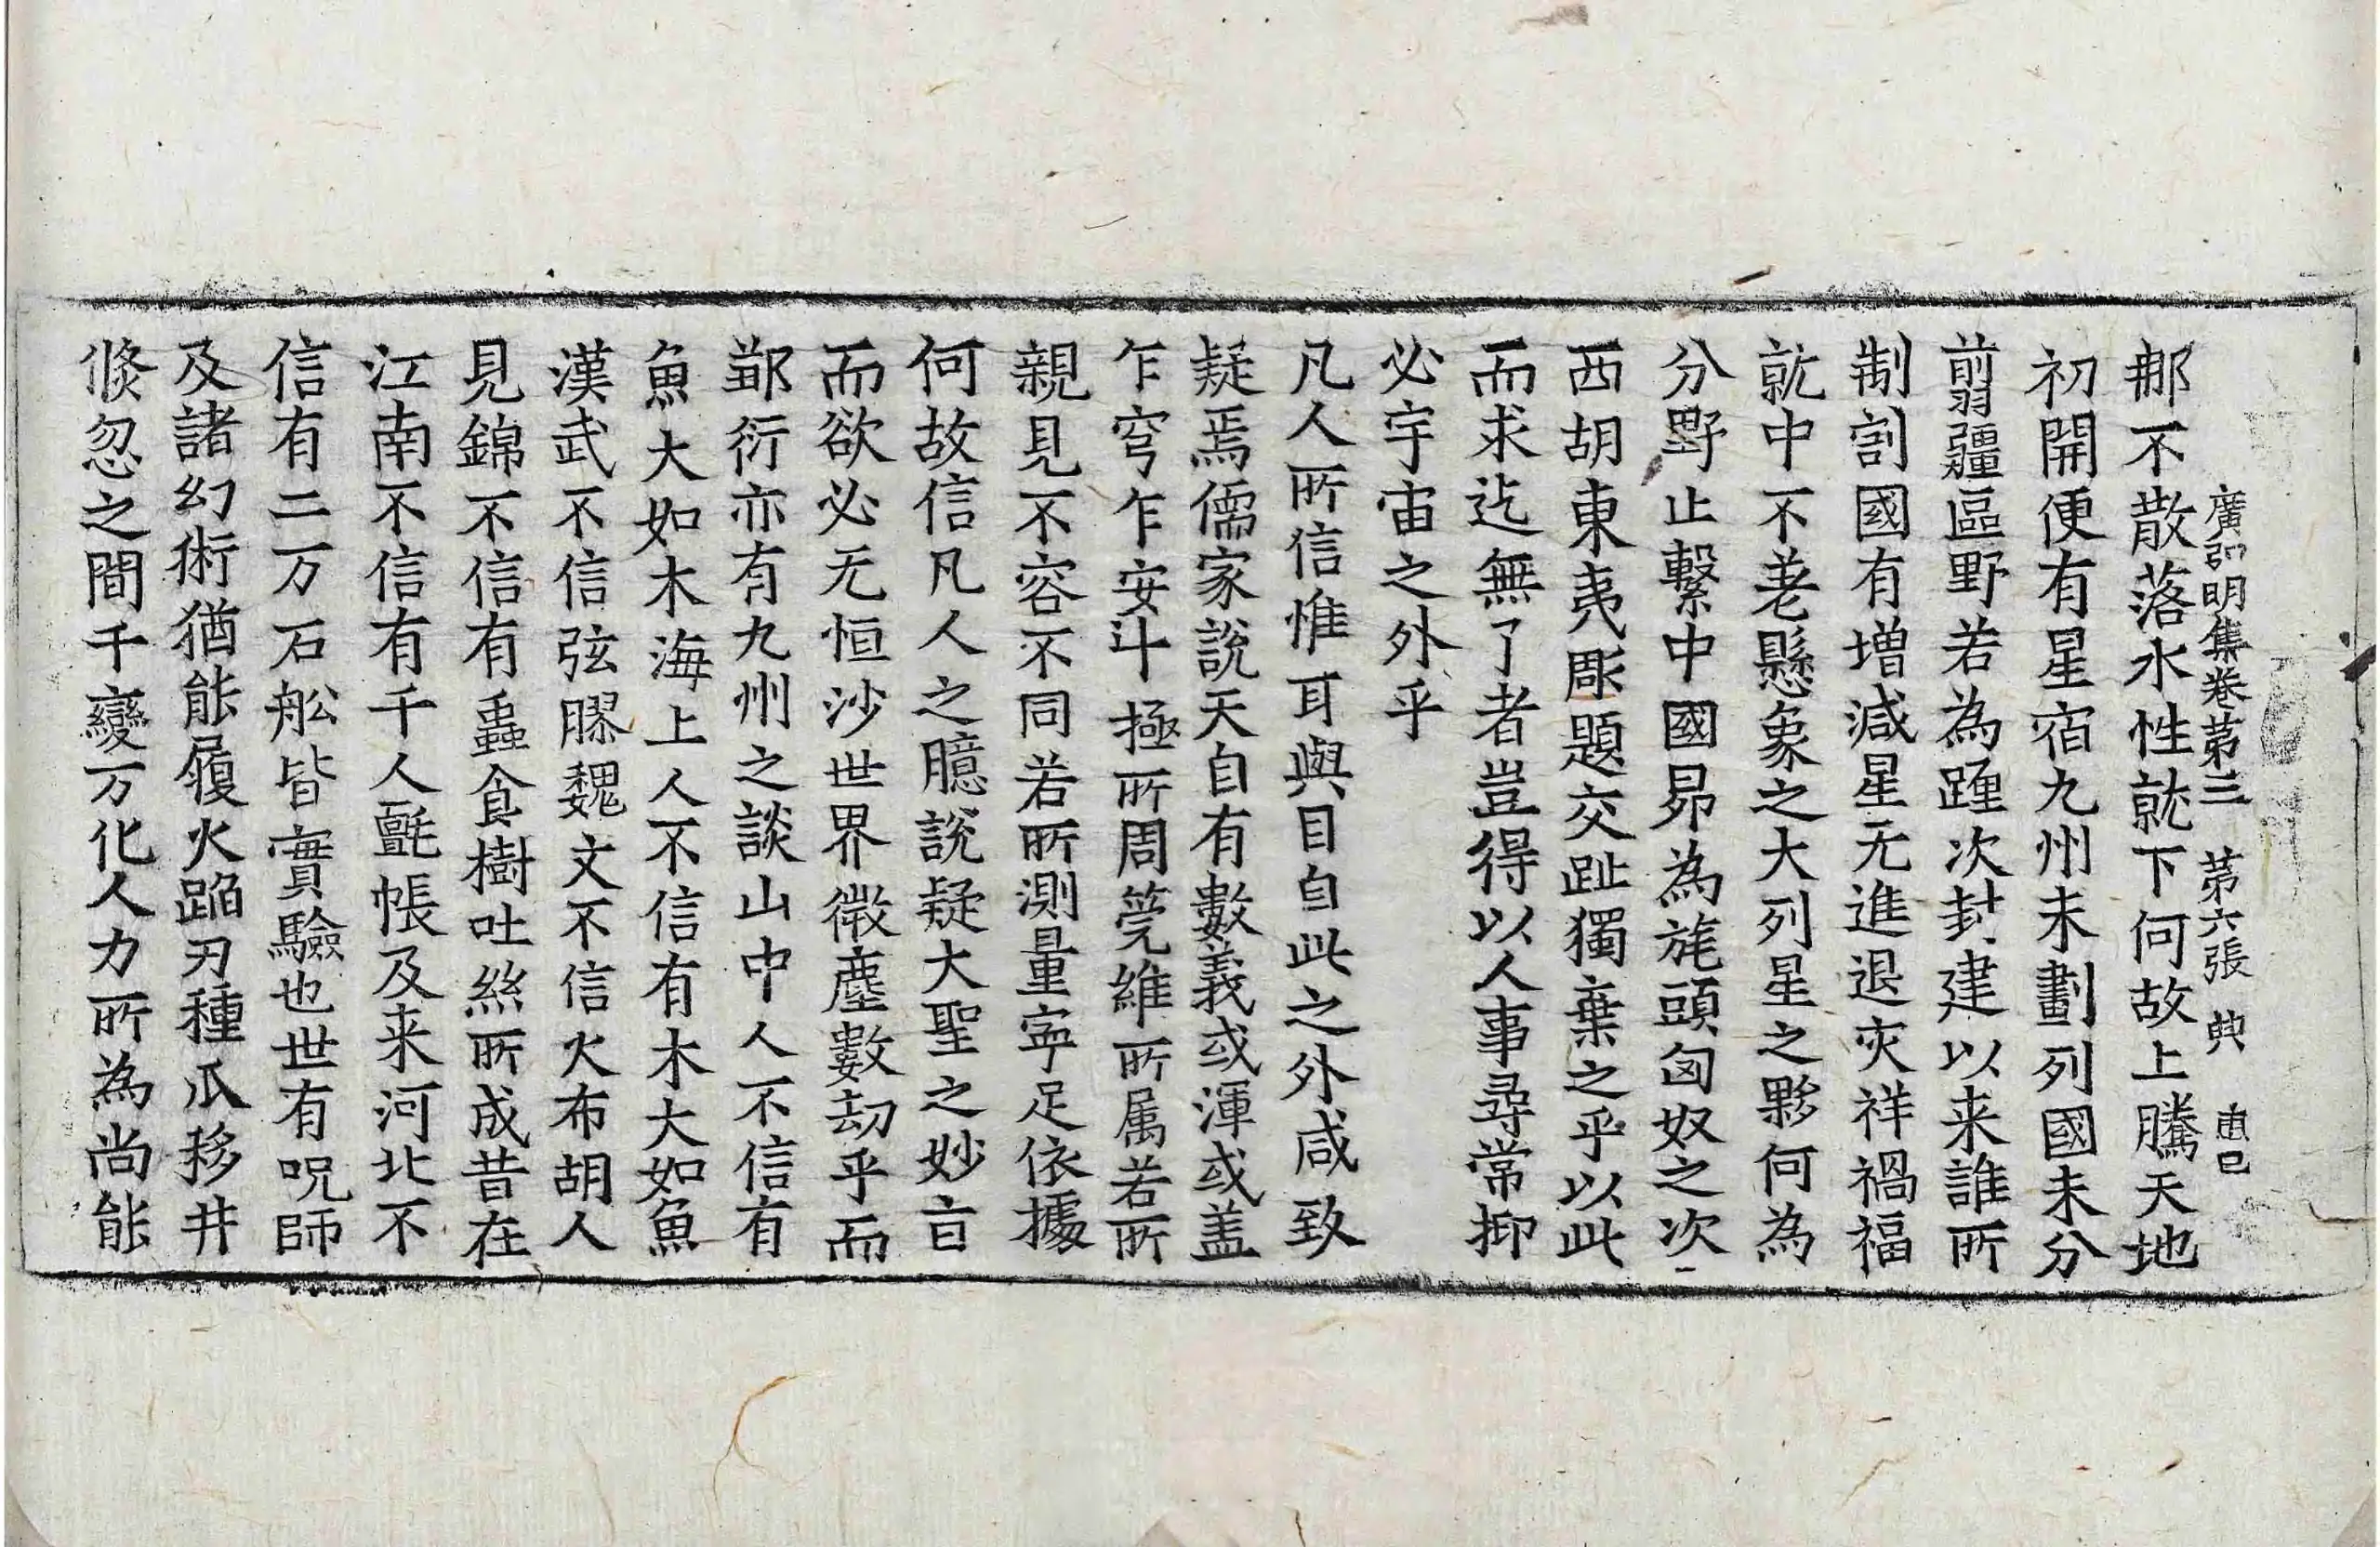 廣弘明集卷第三 第六張 典
那不散落水性就下何故上騰天地
初開便有星宿九州未劃列國未分
翦疆區野若為躔次封建以来誰所
制割國有增減星无進退灾祥禍福
就中不差懸象之大列星之夥何為
分野止繫中國昴為旄頭匈奴之次
西胡東夷彫題交趾獨棄之乎以此
而求迄無了者豈得以人事尋常抑
必宇宙之外乎
凡人所信惟耳與目自此之外咸致
疑焉儒家說天自有數義或渾或盖
乍穹乍安斗極所周筦維所属若所
親見不容不同若所測量寧足依據
何故信凡人之臆說疑大聖之妙旨
而欲必无恒沙世界微塵數劫乎而
鄒衍亦有九州之談山中人不信有
魚大如木海上人不信有木大如魚
漢武不信弦膠魏文不信火布胡人
見錦不信有蟲食樹吐絲所成昔在
江南不信有千人氈帳及来河北不
信有二万石舩皆實驗也世有呪師
及諸幻術猶能履火蹈刃種瓜移井
倏忽之間千變万化人力所為尚能